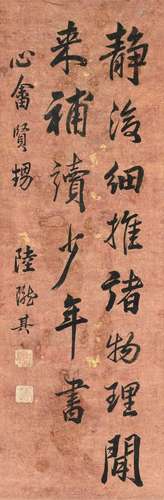 静後細推諸物理閒
来補讀少年書
心畬賢甥
陸隴其